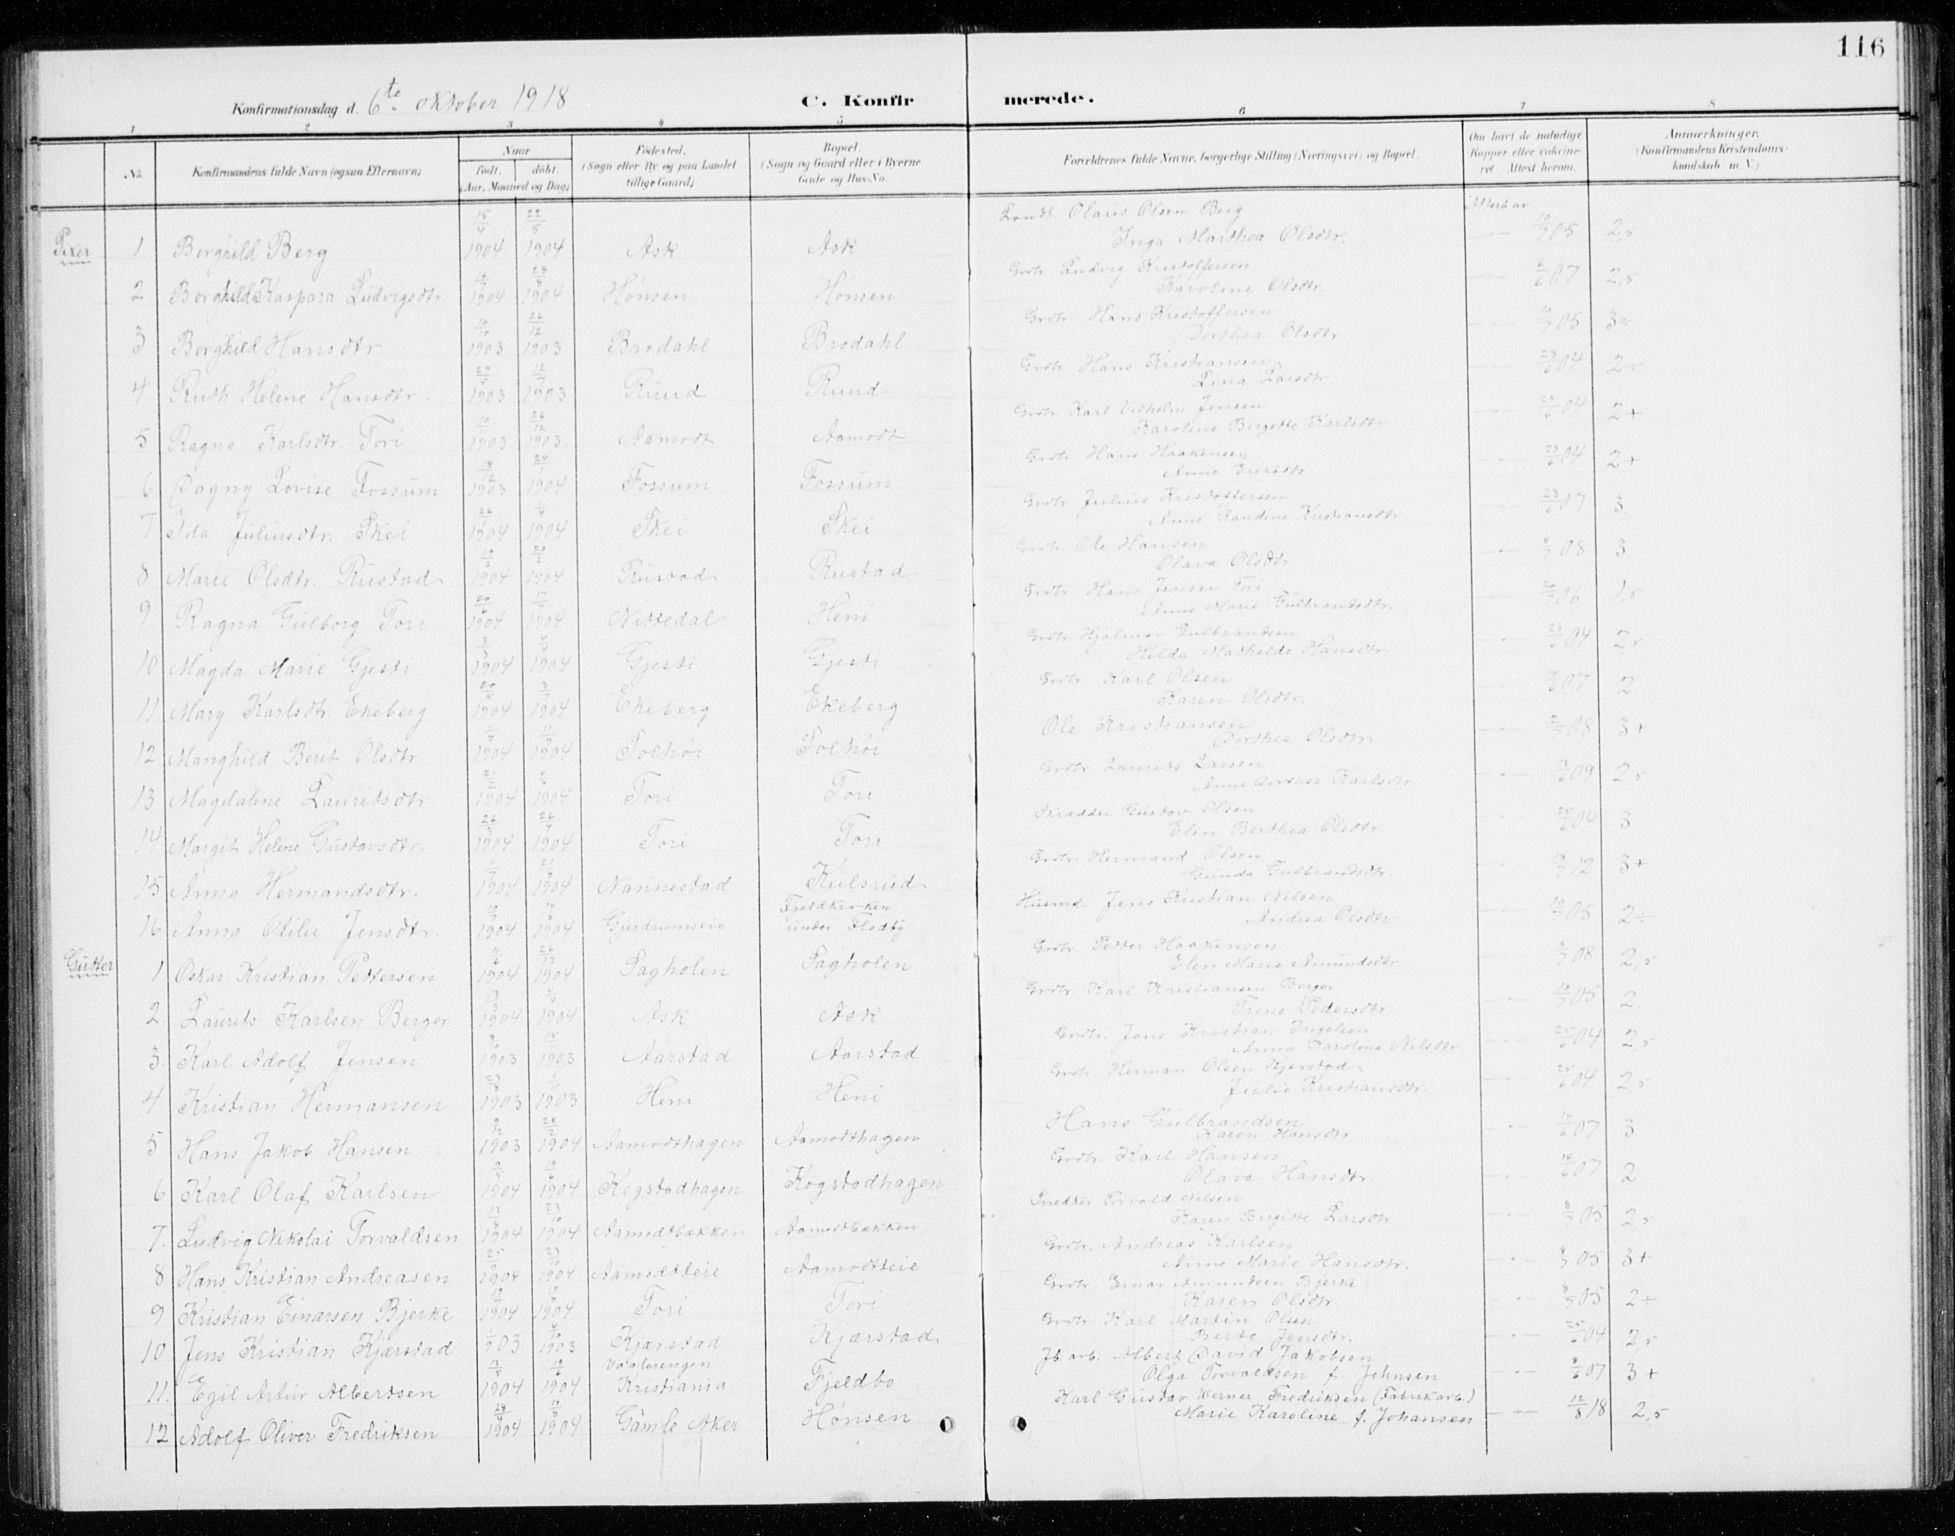 116
Konfirmationsdag d. 6te oktober 1918
C. Konfirmerede.
1 2 3 4 5 6 7 8
No. Konfirmandens fulde Navn (ogsaa Efternavn) Naar født. døbt. (Aar, Maaned og Dag) Fødested. (Sogn eller By og paa Landet tillige Gaard) Bopæl. (Sogn og Gaard eller i Byerne Gade og Hus-No. Forældrenes fulde Navne, borgerlige Stilling (Næringsvei) og Bopæl. Om havt de naturlige Kopper eller vakcineret. Attest herom. Anmærkninger. (Konfirmandens Kristendomskundskab m. V.)
Piker
1. Borghild Berg 15/4 1904 22/5 1904 Ask Ask Landh. Olaus Olsen Berg Inga Marthea Olsdtr. Attest av 10/7 05 2,5
2 Borghild Kaspara Ludvigsdtr. 1904 1904 Hønsen Hønsen Grdtr. Ludvig Kristoffersen Karoline Olsdtr. 6/6 07 2,5
3 Borghild Hansdtr. 1903 26/12 1903 Brodahl Brodahl Grdtr. Hans Kristoffersen Dorthea Olsdtr. 10/7 05 3
4. Ruth Helene Hansdtr. 1903 1903 Ruud Ruud Grdtr. Hans Kristiansen Lina Larsdtr. 23/6 04 2
5 Ragna Karlsdtr. Tori 1903 26/12 1903 Aamodt Aamodt Grdtr. Karl Vilhelm Jensen Karoline Birgitte Karlsdtr. 23/6 04 2+
6 Dagny Lovise Fossum 1903 24/1 1904 Fossum Fossum Grdtr. Hans Haakensen Anne Eriksdtr. 23/6 04 2+
7 Ida Juliusdtr. Skei 1904 1904 Skei Skei Grdtr. Julius Kristoffersen Anne Randine Kristiansdtr. 23/6 07 3
8 Marie Olsdtr. Rustad 1904 1904 Rustad Rustad Grdtr. Ole Hansen Olava Olsdtr. 08 3
9. Ragna Gulborg Tori 1904 1904 Nittedal Heni Grdtr. Hans Jensen Tori Anne Marie Gulbrandsdtr. 06 1,5
10 Magda Marie Gjesti 3/3 1904 1904 Gjesti Gjesti Grdtr. Hjalmar Gulbrandsen Hilda Mathilde Hansdtr. 04 2,5
11 Mary Karlsdtr. Ekeberg 1904 1904 Ekeberg Ekeberg Grdtr. Karl Olsen Karen Olsdtr. 07 2.
12 Manghild Berit Olsdtr. 1904 1904 Solhøi Solhøi Ole Kristiansen Dorthea Olsdtr. 08 3+
13 Magdalene Lauritsdtr. 1904 1904 Tori Tori Grdtr. Laurits Larsen Anne Dorthea Karlsdtr. 09 2,5
14 Margit Helene Gustavsdtr. 1904 1904 Tori Tori Skrædder Gustav Olsen Elen Berthea Olsdtr. 25/6 04 3
15 Anna Hermandsdtr. 1904 1904 Nannestad Kulsrud Grdtr. Hermand Olsen Gunda Gulbrandsdtr. 12 3+
16 Anna Otilie Jensdtr. 1904 1904 Gjerdrumseie Fjeldkirken under Flodby Husmd. Jens Kristian Nilsen Andrea Olsdtr. 05 2÷
Gutter
1 Oskar Kristian Pettersen 1904 1904 Sagholen Sagholen Grdtr. Petter Haakensen Elen Marie Amundsdtr. 08 2,5
2 Laurits Karlsen Berger 1904 1904 Ask Ask Grdtr. Karl Kristiansen Berger Trine Pedersdtr. 05 2.
3. Karl Adolf Jensen 1903 1903 Aarstad Aarstad Grdtr. Jens Kristian Ingelsen Anna Karoline Nilsdtr. 25/6 04 2,5
4 Kristian Hermansen 1903 1903 Heni Heni Grdtr. Herman Olsen Kjærstad Julie Kristiansdtr. 25/6 04 2,5
5 Hans Jakob Hansen 1903 28/2 1904 Aamodthagen Aamodthagen Hans Gulbrandsen Karen Hansdtr. 14/6 07 3
6 Karl Olaf Karlsen 1904 1904 Kogstadhagen Kogstadhagen Grdtr. Karl Hansen Olava Hansdtr. 14/6 07 2
7. Ludvig Nikolai Torvaldsen 1904 23/10 1904 Aamodtbakken Aamodtbakken Snekker Torvald Nilsen Karen Birgitte Larsdtr. 8/7 05 2,5
8 Hans Kristian Andreasen 1904 23/10 1904 Aamodteie Aamodteie Grdtr. Andreas Karlsen Anne Marie Hansdtr. 8/7 05 3+
9 Kristian Einarsen Bjerke 1904 1904 Tori Tori Grdtr. Einar Amundsen Bjerke Karen Olsdtr. 8/7 05 2÷
10 Jens Kristian Kjærstad 1903 1903 Kjærstad Kjærstad Grdtr. Karl Martin Olsen Berte Jensdtr. 25/6 04 2,5
11. Egil Artur Albertsen 1904 1904 Vaalerengen Kristiania Fjeldbo Jb. arb. Albert David Jakobsen Olga Torvaldsen f. Johnsen 07 3+
12 Adolf Oliver Fredriksen 1904 1904 Gamle Aker Hønsen Karl Gustav Verner Fredriksen (Fabrikarb.) Marie Karoline f. Johansen 12/8 18 2,5